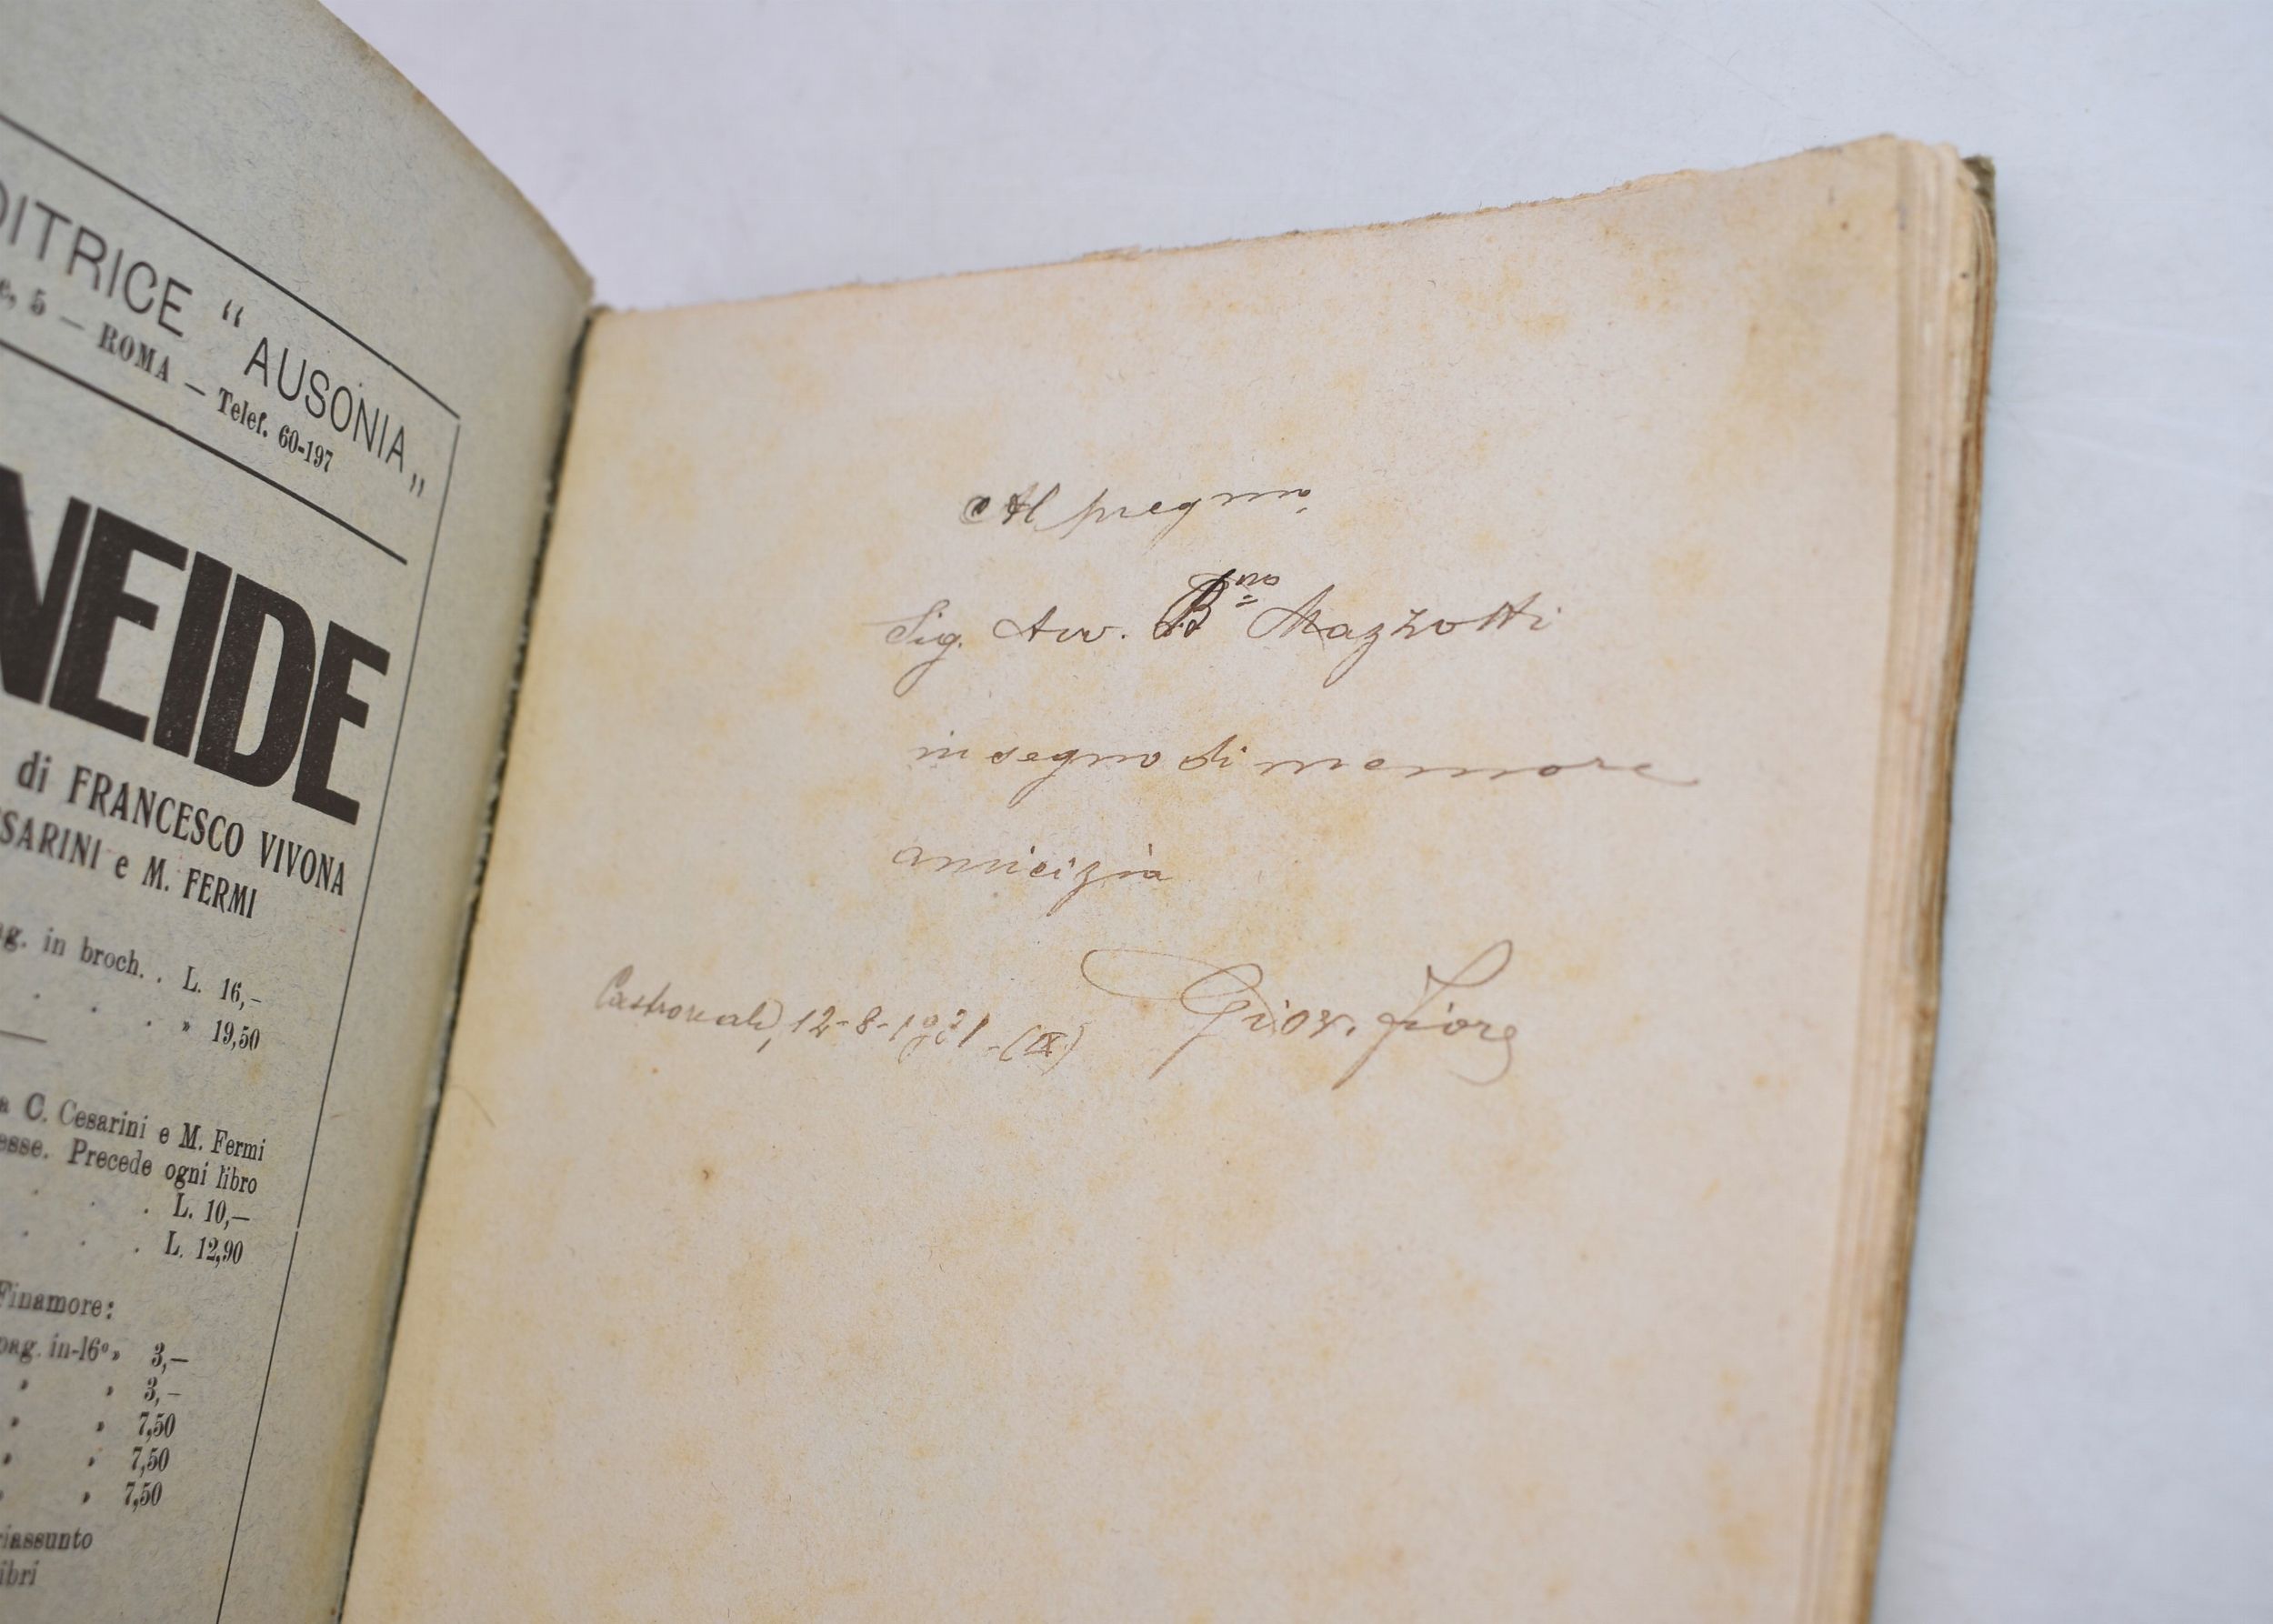 DITRICE “ AUSONIA „
, 5 — ROMA — Telef. 60-197
NEIDE
di FRANCESCO VIVONA
SARINI e M. FERMI
g. in broch. . L. 16,–
. . . » 19,50
a C. Cesarini e M. Fermi
esse. Precede ogni libro
. . . L. 10,—
. . . L. 12,90
Finamore:
pag. in-16° » 3,—
» » 3,–
» » 7,50
» » 7,50
» » 7,50
riassunto
ibri
Al pregmo
Sig. Avv. Bno Mazzotti
in segno di memore
amicizia
Castroreale, 12-8-1931-(IX)
Giov. Fiore